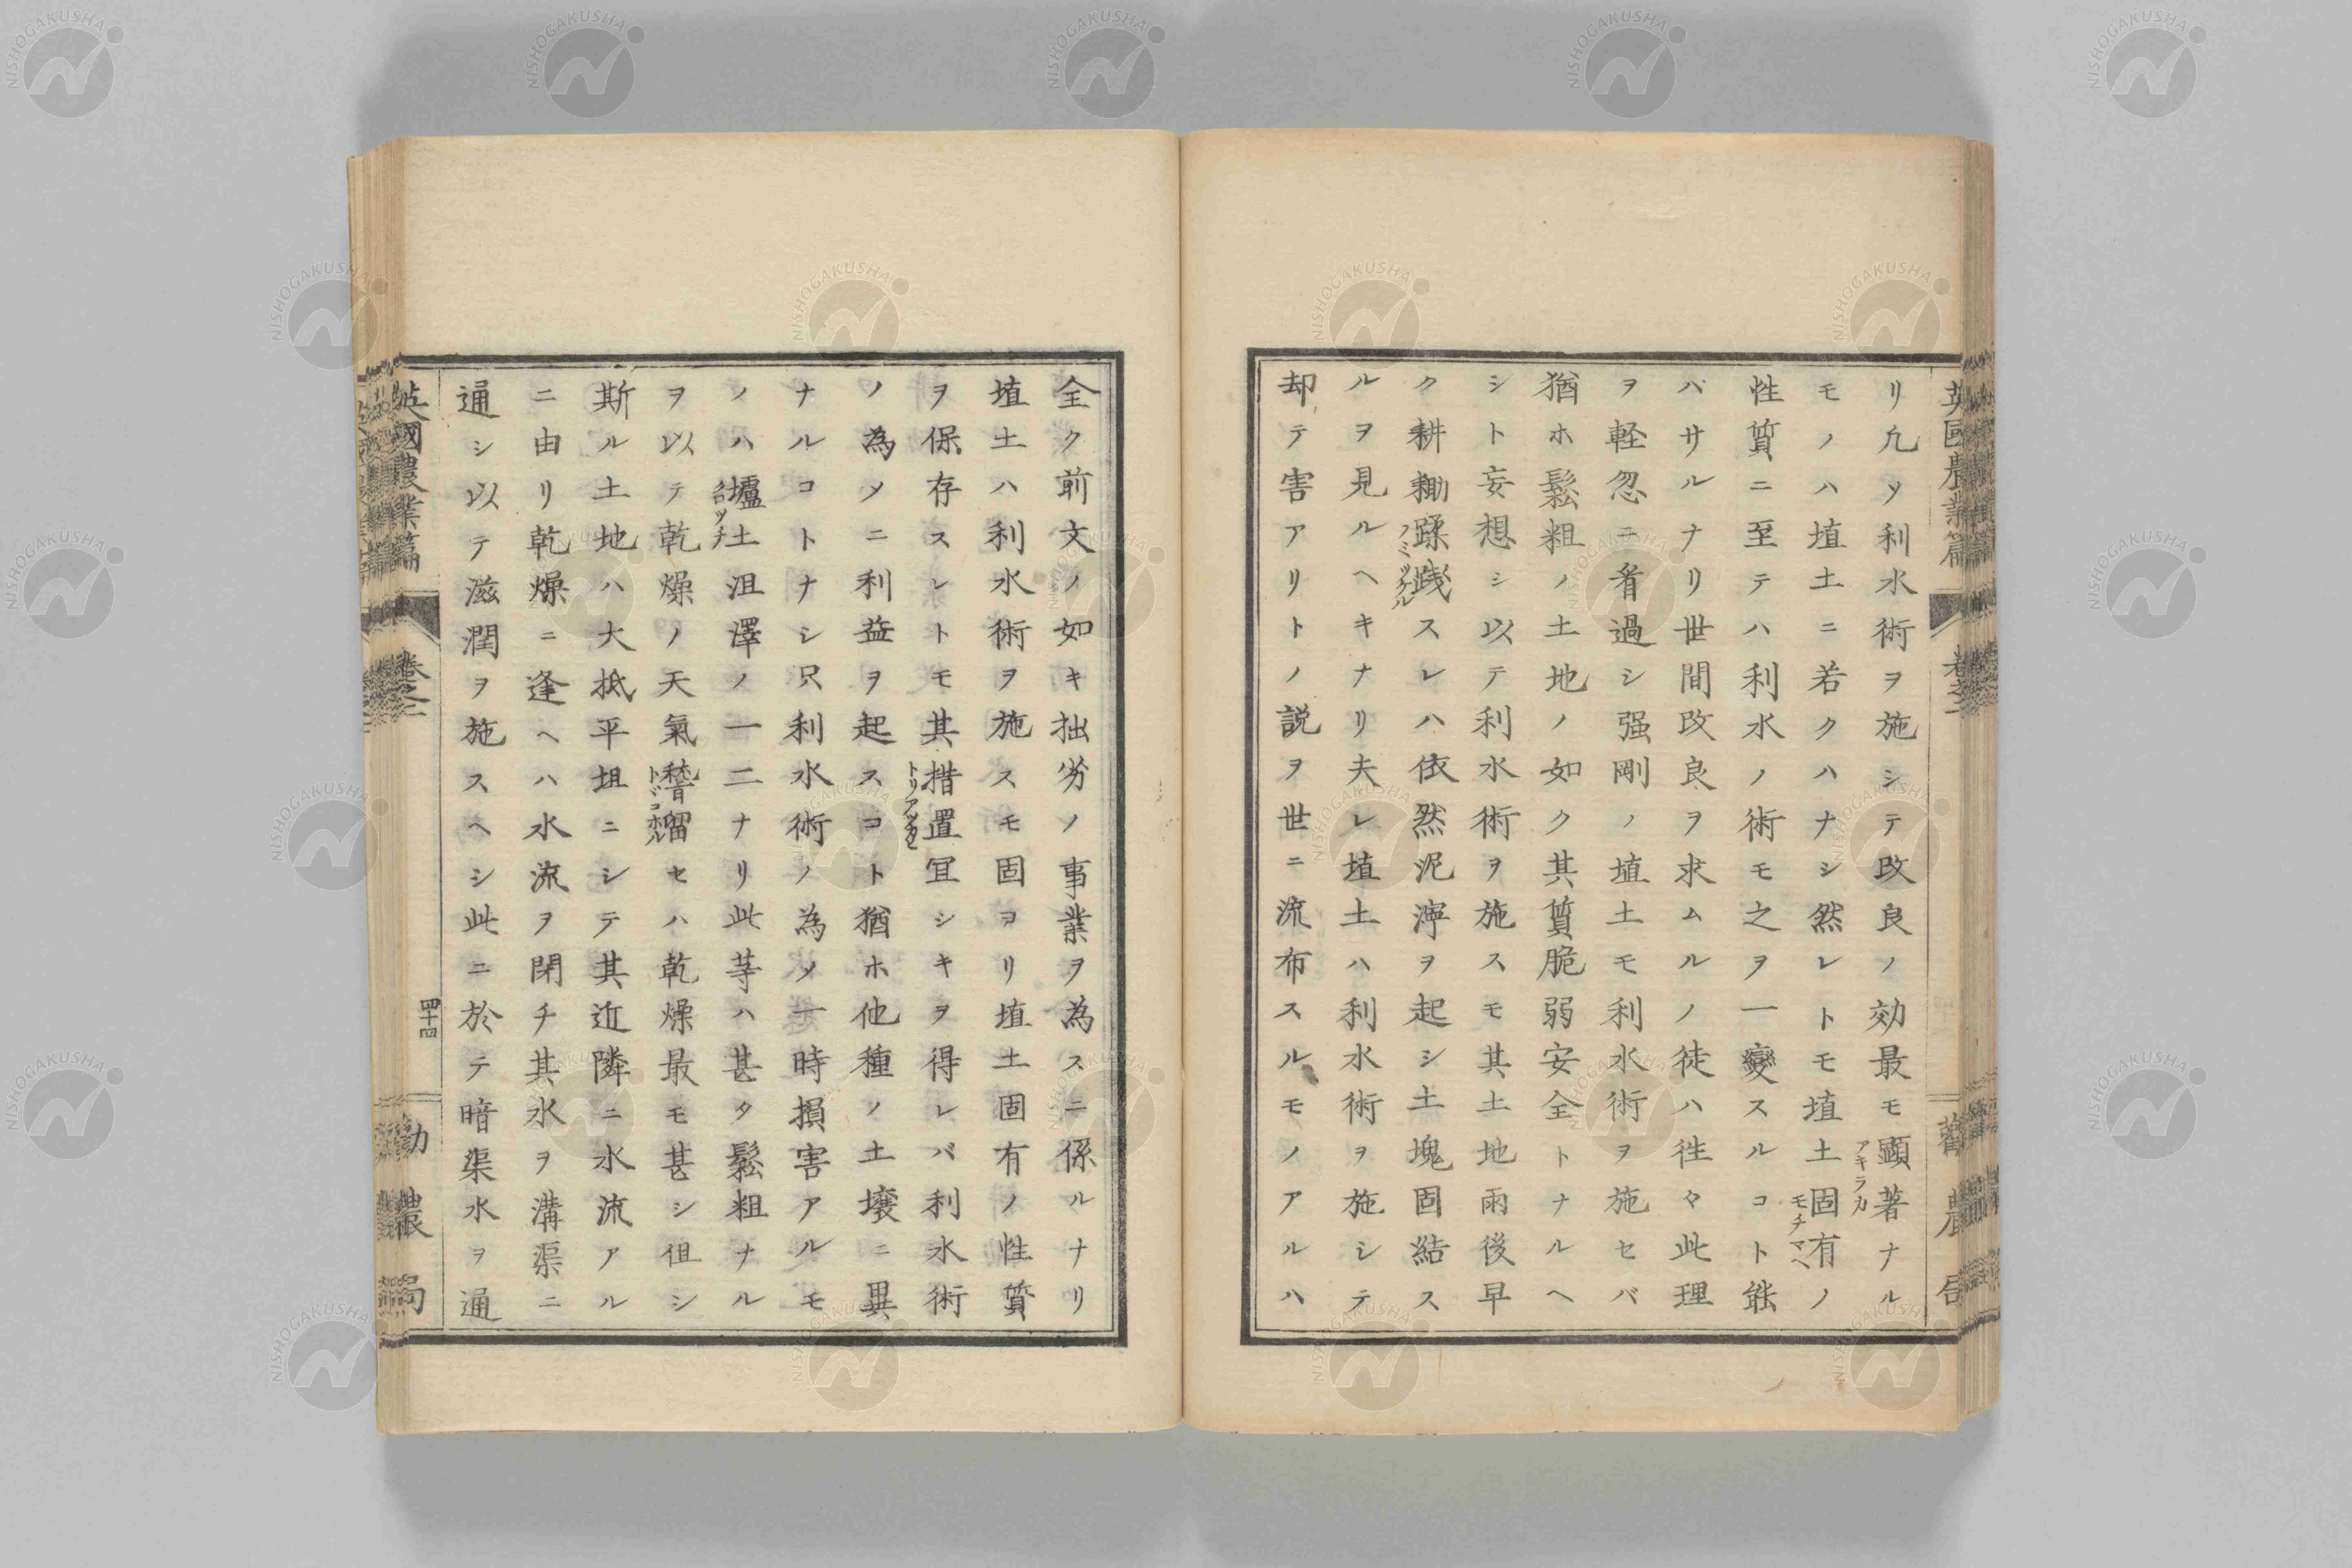 英國農業篇 卷之二 勸農局
リ凢ソ利水術ヲ施シテ改良ノ効最モ顕著ナル
アキラカ
モノハ埴土ニ若クハナシ然レトモ埴土固有ノ
モチマヘ
性質ニ至テハ利水ノ術モ之ヲ一變スルコト能
ハサルナリ世間改良ヲ求ムルノ徒ハ徃々此理
ヲ軽忽ニ看過シ强剛ノ埴土モ利水術ヲ施セバ
猶ホ鬆粗ノ土地ノ如ク其質脆弱安全トナルヘ
シト妄想シ以テ利水術ヲ施スモ其土地雨後早
ク耕耡蹂践スレハ依然泥濘ヲ起シ土塊固結ス
フミツクル
ルヲ見ルヘキナリ夫レ埴土ハ利水術ヲ施シテ
却テ害アリトノ説ヲ世ニ流布スルモノアルハ
全ク前文ノ如キ拙劣ノ事業ヲ為スニ係ルナリ
埴土ハ利水術ヲ施スモ固ヨリ埴土固有ノ性質
ヲ保存スレトモ其措置冝シキヲ得レバ利水術
トリアツカヒ
ノ為メニ利益ヲ起スコト猶ホ他種ノ土壌ニ異
ナルコトナシ只利水術ノ為メ一時損害アルモ
ノハ壚土沮澤ノ一二ナリ此等ハ甚タ鬆粗ナル
クロツチ
ヲ以テ乾燥ノ天氣稽留セハ乾燥最モ甚シ伹シ
トドコホル
斯ル土地ハ大抵平坦ニシテ其近隣ニ水流アル
ニ由リ乾燥ニ逢ヘハ水流ヲ閉チ其水ヲ溝渠ニ
通シ以テ滋潤ヲ施スヘシ此ニ於テ暗渠水ヲ通
英國農業篇 卷之二 四十四 勸農局